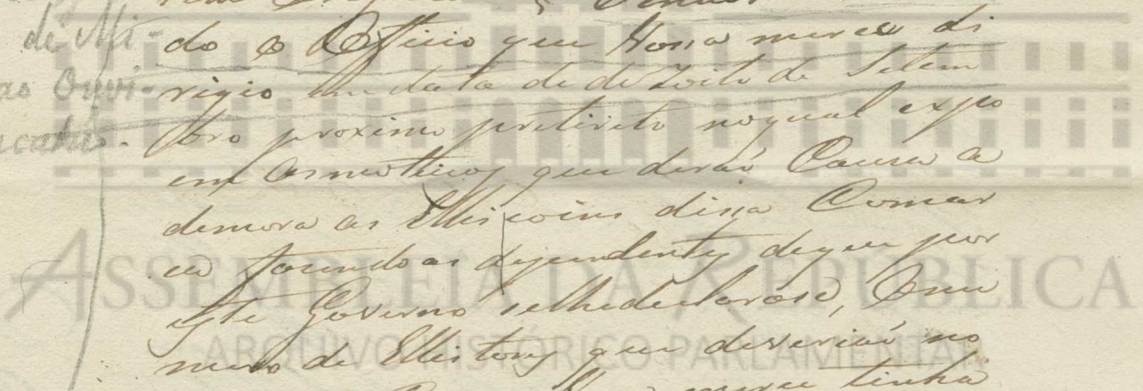 de Mi-
as Ouvi-
do o Officio que Vossa merce di
rigio em data de dezoito de Setem
bro proximo preterito no qual expo
em os motivos que derão Cauza a
demora as Elleicoins dessa Comar
ca fazendo as dependentes de que por
este Governo se lhe declarase, O nu
mero de Elleitores que deverião no
merce tinha
ASSEMBLEIA DA REPÚBLICA
ARQUIVO HISTÓRICO PARLAMENTAR